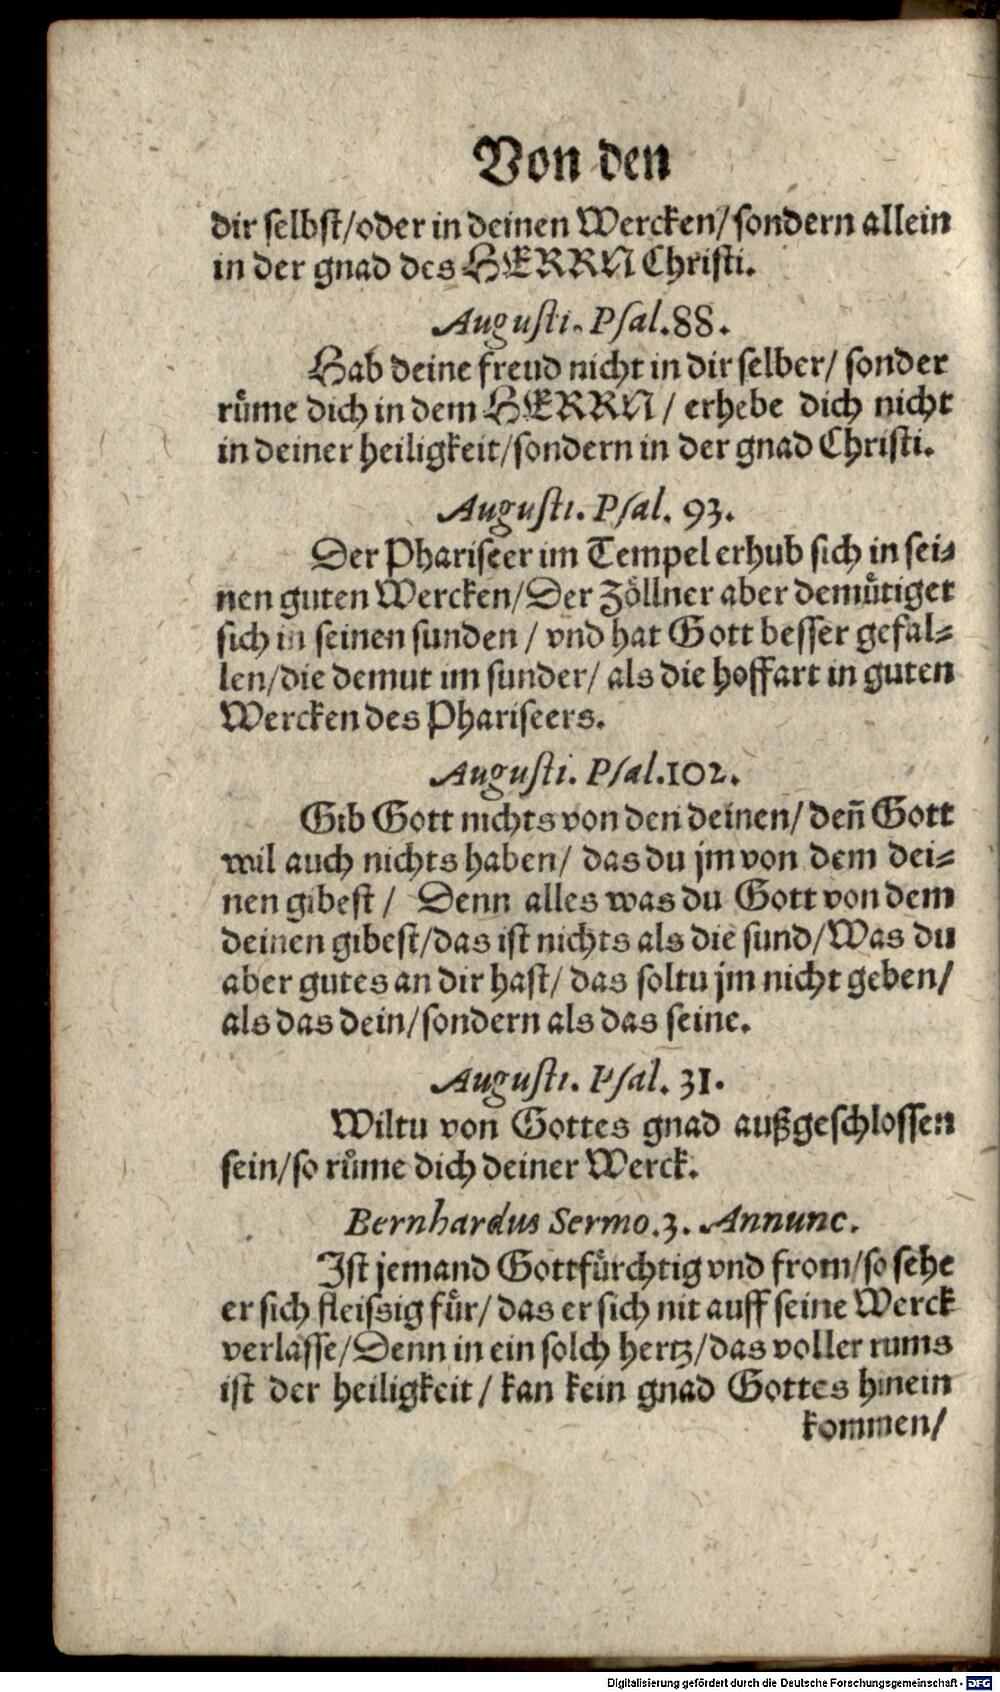 Von den
dir selbst/oder in deinen Wercken/sondern allein
in der gnad des HERRN Christi.
Augusti. Psal. 88.
Hab deine freud nicht in dir selber/ sonder
růme dich in dem HERRN / erhebe dich nicht
in deiner heiligkeit/sondern in der gnad Christi.
Augusti. Psal. 93.
Der Phariseer im Tempel erhub sich in sei-
nen guten Wercken/Der Zöllner aber demůtiget
sich in seinen sunden / vnd hat Gott besser gefal-
len/die demut im sunder/ als die hoffart in guten
Wercken des Phariseers.
Augusti. Psal. 102.
Gib Gott nichts von den deinen/ deñ Gott
wil auch nichts haben/ das du jm von dem dei-
nen gibest / Denn alles was du Gott von dem
deinen gibest/das ist nichts als die sund/Was du
aber gutes an dir hast/ das soltu jm nicht geben/
als das dein/sondern als das seine.
Augusti. Psal. 31.
Wiltu von Gottes gnad außgeschlossen
sein/so růme dich deiner Werck.
Bernhardus Sermo. 3. Annunc.
Ist jemand Gottfürchtig vnd from/so sehe
er sich fleissig für/ das er sich nit auff seine Werck
verlasse/Denn in ein solch hertz/das voller rums
ist der heiligkeit / kan kein gnad Gottes hinein
kommen/
Digitalisierung gefördert durch die Deutsche Forschungsgemeinschaft - DFG